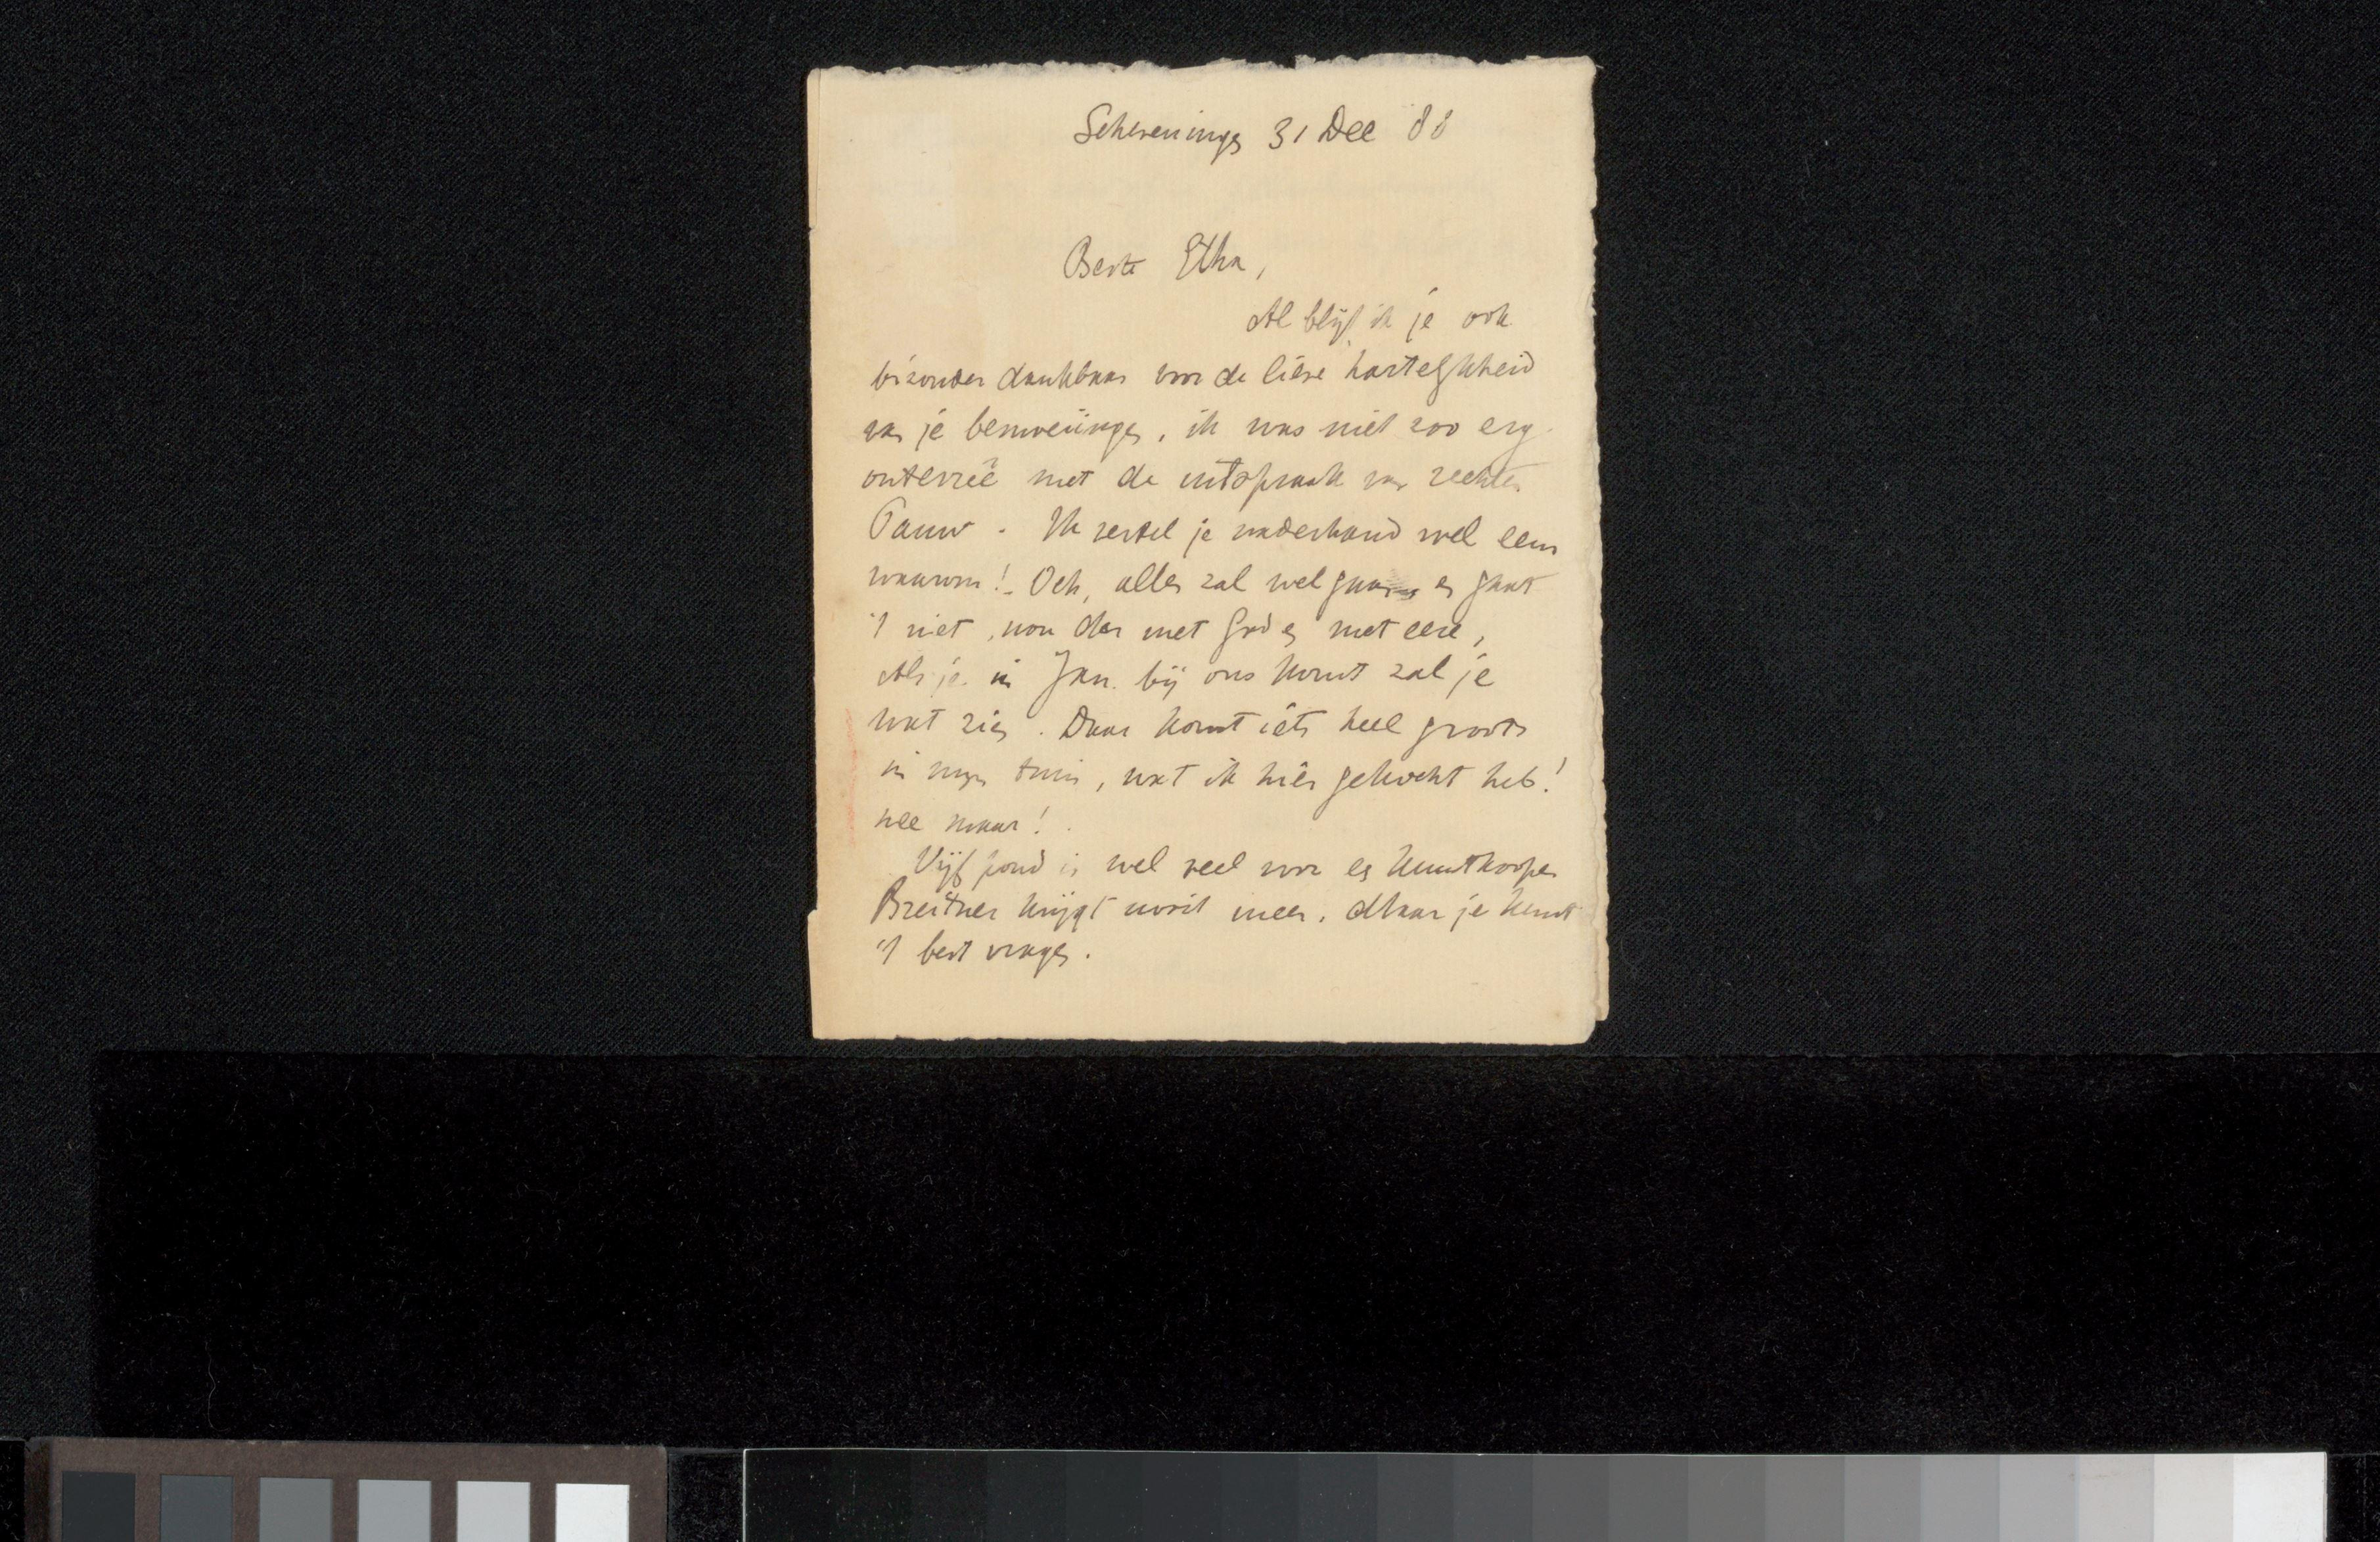 Scheveningen 31 Dec 88
Beste Etha,
Al blijf ik je ook
bizonder dankbaar voor de lieve hartelijkheid
van je bemoeiingen, ik was niet zoo erg
ontevreê met de uitspraak van rechter
Pauw. Ik vertel je naderhand wel eens
waarom! - Och, alles zal wel gaan en gaat
't niet, nou dan met God en met eere,
Als je in Jan. bij ons komt zal je
wat zien. Daar komt iets heel groots
in mijn tuin, wat ik hier gekocht heb!
nee maar!
Vijf pond is wel veel voor en kunstkooper
Breitner krijgt nooit meer. Maar je kunt
't best vragen.